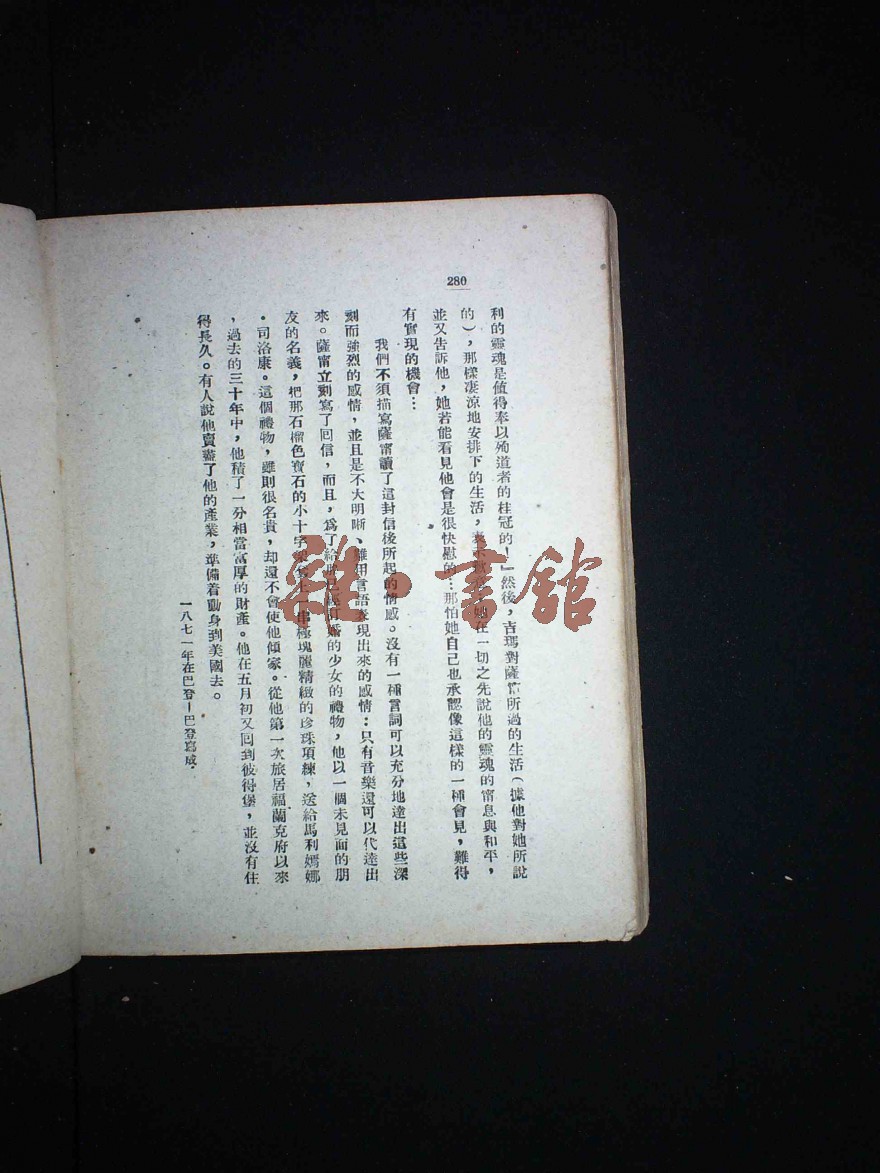 280
利的靈魂是値得奉以殉道者的桂冠的！」然後，吉瑪對薩甯所過的生活（據他對她所說
的），那樣凄涼地安排下的生活，表示歎息，她在一切之先說他的靈魂的甯息與和平，
並又告訴他，她若能看見他會是很快慰的…那怕她自己也承認像這樣的一種會見，難得
有實現的機會…
我們不須描寫薩甯讀了這封信後所起的情感。沒有一種言詞可以充分地達出這些深
刻而強烈的感情，並且是不大明晰、難用言語表現出來的感情：只有音樂還可以代達出
來。薩甯立刻寫了回信，而且，爲了給那已經訂婚的少女的禮物，他以一個未見面的朋
友的名義，把那石榴色寶石的小十字架 一串極瑰麗精緻的珍珠項練，送給馬利嫣娜
・司洛康。這個禮物，雖則很名貴，却還不會使他傾家。從他第一次旅居福蘭克府以來
，過去的三十年中，他積了一分相當富厚的財產。他在五月初又回到彼得堡，並沒有住
得長久。有人說他賣盡了他的產業，準備着動身到美國去。
一八七一年在巴登－巴登寫成．
雜・書館